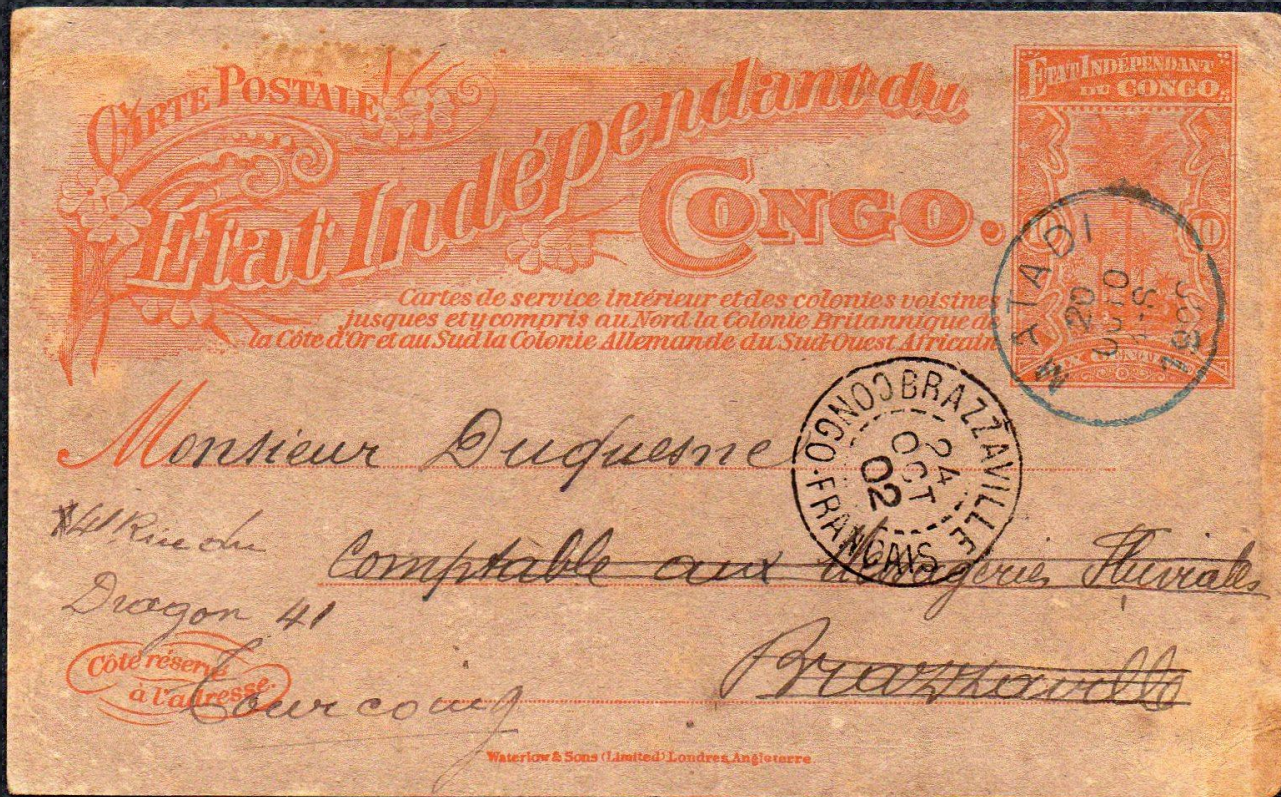 CARTE POSTALE
État Indépendant du
CONGO.
Cartes de service intérieur et des colonies voisines
jusques et y compris au Nord la Colonie Britannique de
la Côte d'Or et au Sud la Colonie Allemande du Sud-Ouest Africain
ÉTAT INDÉPENDANT
DU CONGO
10
MATADI
20
OCTO
1902
CONGO FRANÇAIS BRAZZAVILLE
24
OCT
02
Monsieur Duquesne
Comptable aux Messageries Fluviales
Brazzaville
41 Rue du
Dragon 41
Tourcoing
Côté réservé
à l'adresse.
Waterlow & Sons (Limited) Londres, Angleterre